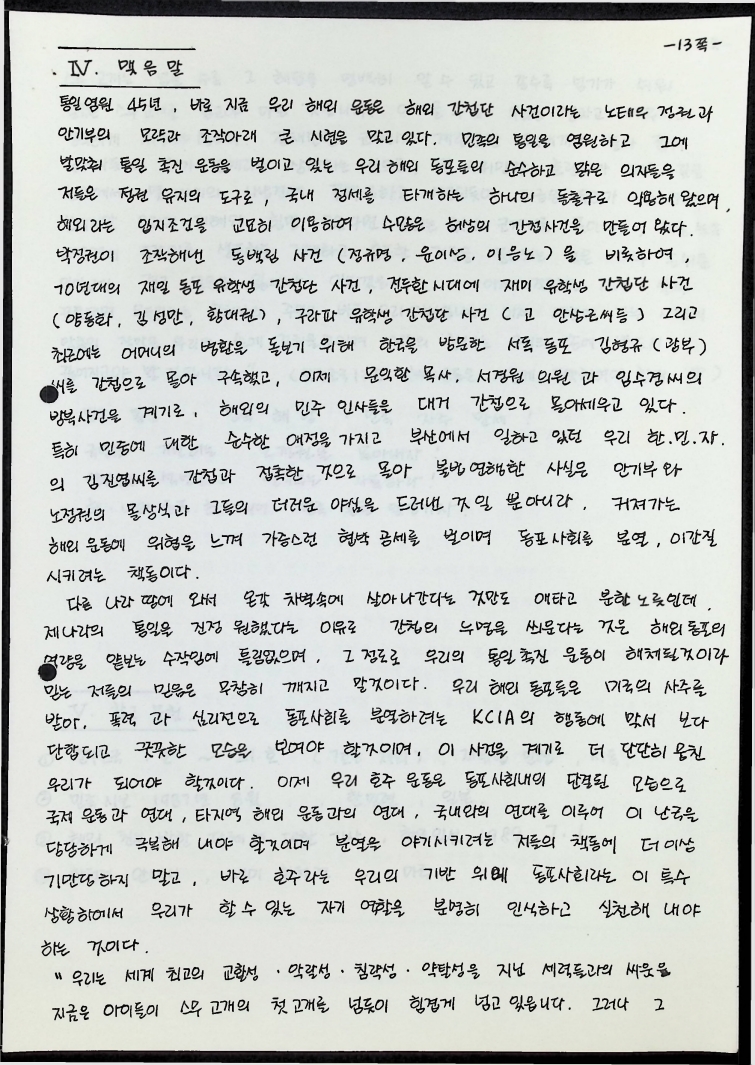 -13쪽-
Ⅳ. 맺음말
통일염원 45년, 바로 지금 우리 해외 운동은 해외 간첩단 사건이라는 노태우 정권과
안기부의 모략과 조작아래 큰 시련을 맞고 있다. 민족의 통일을 염원하고 그에
발맞춰 통일 촉진 운동을 벌이고 있는 우리 해외 동포들의 순수하고 맑은 의지들을
저들은 정권 유지의 도구로, 국내 정세를 타개하는 하나의 돌출구로 악용해 왔으며,
해외라는 입지조건을 교묘히 이용하여 수많은 허상의 간첩사건을 만들어 왔다.
박정권이 조작해낸 동백림 사건 (정규명, 윤이상, 이응노) 을 비롯하여,
70년대의 재일 동포 유학생 간첩단 사건, 전두환시대에 재미 유학생 간첩단 사건
(양동화, 김성만, 황대권), 구라파 유학생 간첩단 사건 (고 안상근씨등) 그리고
최근에는 어머니의 병환을 돌보기 위해 한국을 방문한 서독 동포 김형규 (광부)
씨를 간첩으로 몰아 구속했고, 이제 문익환 목사, 서경원 의원 과 임수경씨의
방북사건을 계기로, 해외의 민주 인사들을 대거 간첩으로 몰아세우고 있다.
특히 민중에 대한 순수한 애정을 가지고 부산에서 일하고 있던 우리 한.민.자.
의 김진엽씨를 간첩과 접촉한 것으로 몰아 불법연행한 사실은 안기부와
노정권의 몰상식과 그들의 더러운 야심을 드러낸 것 일 뿐 아니라, 커져가는
해외 운동에 위협을 느껴 가증스런 협박 공세를 벌이며 동포사회를 분열, 이간질
시키려는 책동이다.
다른 나라 땅에 와서 온갖 차별속에 살아나간다는 것만도 애타고 분한 노릇인데,
제나라의 통일을 진정 원했다는 이유로 간첩의 누명을 씌운다는 것은 해외동포의
역량을 얕보는 수작임에 틀림없으며, 그 정도로 우리의 통일촉진 운동이 해체될것이라
믿는 저들의 믿음은 무참히 깨지고 말것이다. 우리 해외 동포들은 미국의 사주를
받아, 폭력 과 심리전으로 동포사회를 분열하려는 KCIA의 행동에 맞서 보다
단합되고 굳굳한 모습을 보여야 할것이며, 이 사건을 계기로 더 단단히 뭉친
우리가 되어야 할것이다. 이제 우리 호주 운동은 동포사회내의 단결된 모습으로
국제 운동과 연대, 타지역 해외 운동과의 연대, 국내와의 연대를 이루어 이 난국을
당당하게 극복해 내야 할것이며 분열을 야기시키려는 저들의 책동에 더이상
기만당하지 말고, 바로 호주라는 우리의 기반 위에 동포사회라는 이 특수
상황하에서 우리가 할 수 있는 자기 역할을 분명히 인식하고 실천해 내야
하는 것이다.
" 우리는 세계 최고의 교활성 · 악랄성 · 침략성 · 약탈성을 지닌 세력들과의 싸움을
지금은 아이들이 스무 고개의 첫 고개를 넘듯이 힘겹게 넘고 있읍니다. 그러나 그